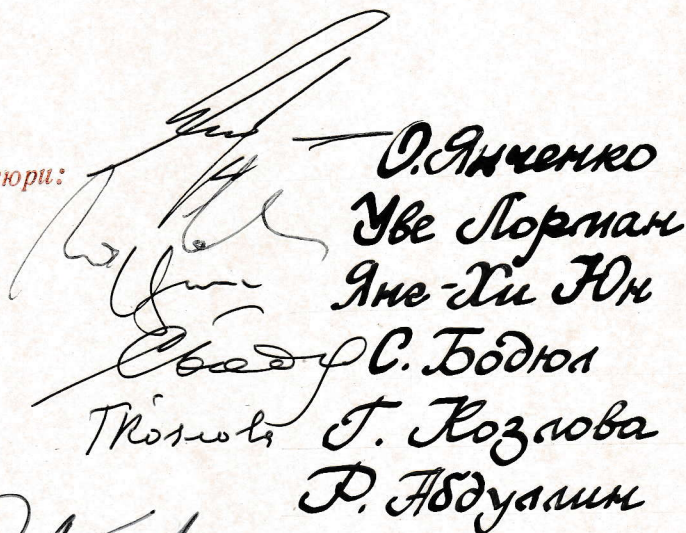 юри: О.Янченко
Уве Лорман
Яне-Хи Юн
С. Бодюл
ТКозлова Г. Козлова
Р. Абдуллин